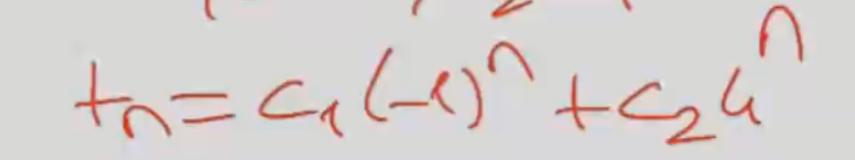 tₙ = c₁(-1)ⁿ + c₂4ⁿ